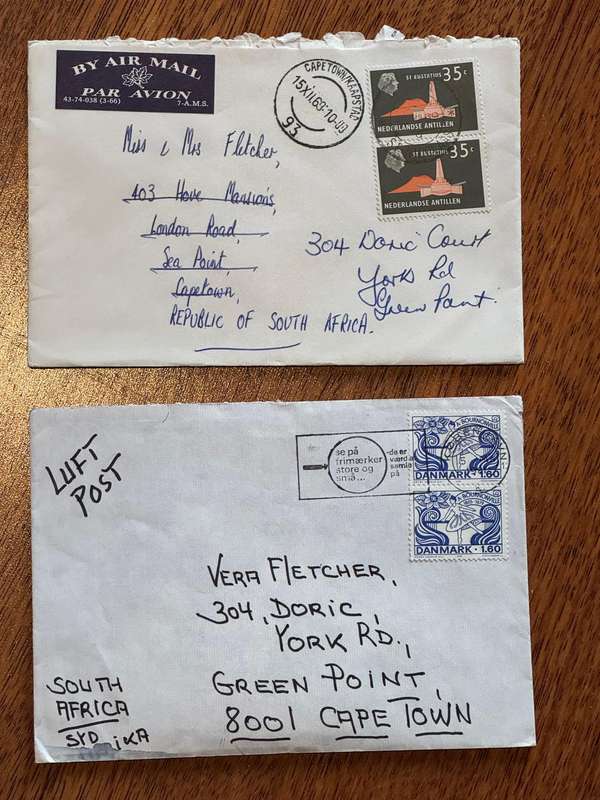 BY AIR MAIL
PAR AVION
43-74-038 (3-66) 7-A.M.S.
CAPE TOWN/KAAPSTAD
15XII.69-10-00
93
ST EUSTATIUS 35c
NEDERLANDSE ANTILLEN
ST EUSTATIUS 35c
NEDERLANDSE ANTILLEN
Miss & Mrs Fletcher,
403 Hove Mansions,
London Road,
Sea Point,
Capetown,
REPUBLIC OF SOUTH AFRICA.
304 Doric Court
York Rd
Green Point.
LUFT
POST
se på
frimærker
store og
små...
-de er
værd a
samle
på
A. BOURNONVILLE
DANMARK · 1.60
A. BOURNONVILLE
DANMARK · 1.60
VERA FLETCHER,
304, DORIC,
YORK RD.,
GREEN POINT,
8001 CAPE TOWN
SOUTH
AFRICA